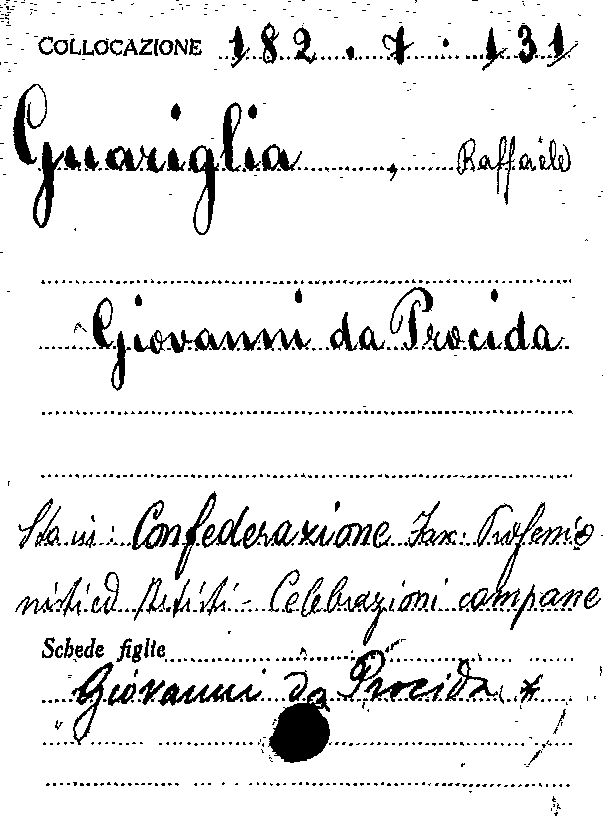 COLLOCAZIONE 182.7.131
Guariglia, Raffaele
Giovanni da Procida
Sta in: Confederazione Fasc. Professio
nisti ed Artisti - Celebrazioni campane
Schede figlie
Giovanni da Procida *